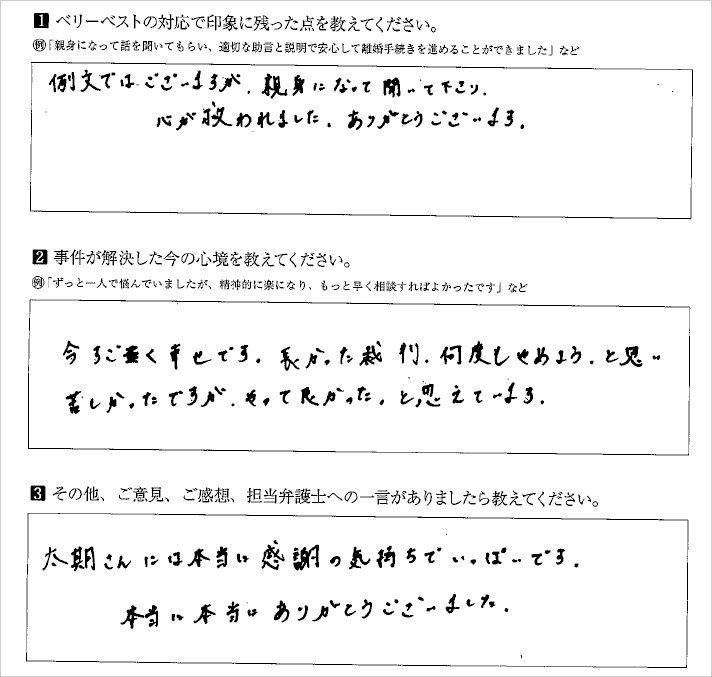 1 ベリーベストの対応で印象に残った点を教えてください。
例「親身になって話を聞いてもらい、適切な助言と説明で安心して離婚手続きを進めることができました」など
例文ではございますが、親身になって聞いて下さり、
心が救われました。ありがとうございます。
2 事件が解決した今の心境を教えてください。
例「ずっと一人で悩んでいましたが、精神的に楽になり、もっと早く相談すればよかったです」など
今すごく幸せです。長かった裁判、何度もやめよう、と思い
苦しかったですが、やって良かった。と、思えています。
3 その他、ご意見、ご感想、担当弁護士への一言がありましたら教えてください。
さんには本当に感謝の気持ちでいっぱいです。
本当に本当にありがとうございました。